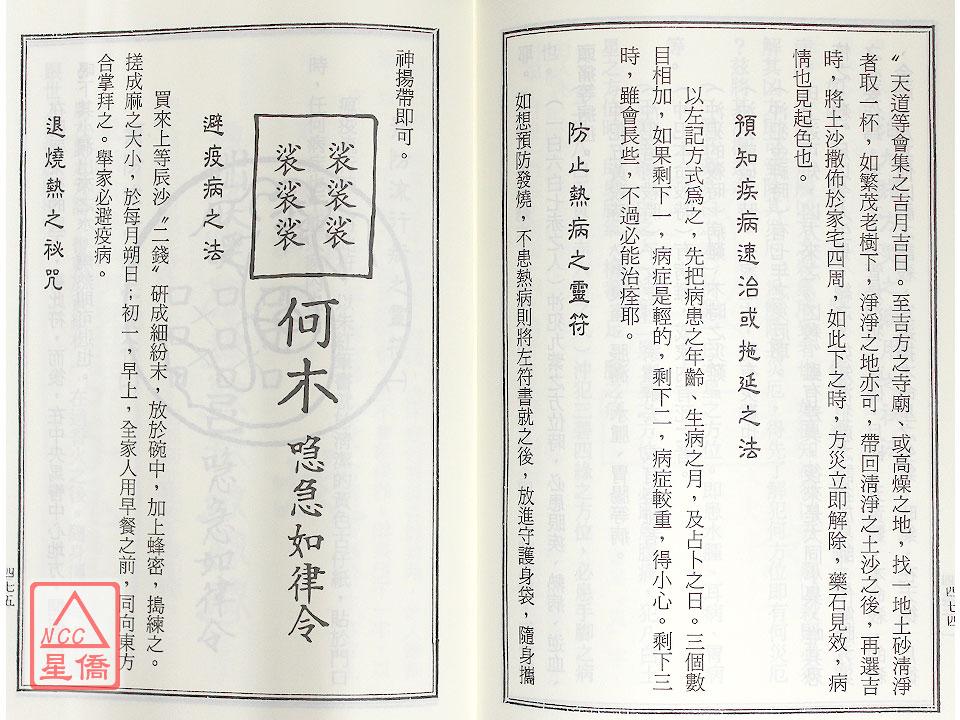 〞天道等會集之吉月吉日。至吉方之寺廟、或高燥之地，找一地土砂清淨
者取一杯，如繁茂老樹下，淨淨之地亦可，帶回清淨之土沙之後，再選吉
時，將土沙撒佈於家宅四周，如此下之時，方災立即解除，藥石見效，病
情也見起色也。
預知疾病速治或拖延之法
以左記方式爲之，先把病患之年齡、生病之月，及占卜之日。三個數
目相加，如果剩下一，病症是輕的，剩下二，病症較重，得小心。剩下三
時，雖會長些，不過必能治痊耶。
防止熱病之靈符
如想預防發燒，不患熱病則將左符書就之後，放進守護身袋，隨身攜
四七四
神揚帶即可。
裟裟裟
裟裟裟
何木
喼急如律令
避疫病之法
買來上等辰沙〝二錢〞研成細紛末，放於碗中，加上蜂密，搗練之。
搓成麻之大小，於每月朔日；初一，早上，全家人用早餐之前，同向東方
合掌拜之。舉家必避疫病。
退燒熱之祕咒
四七五
NCC
星僑